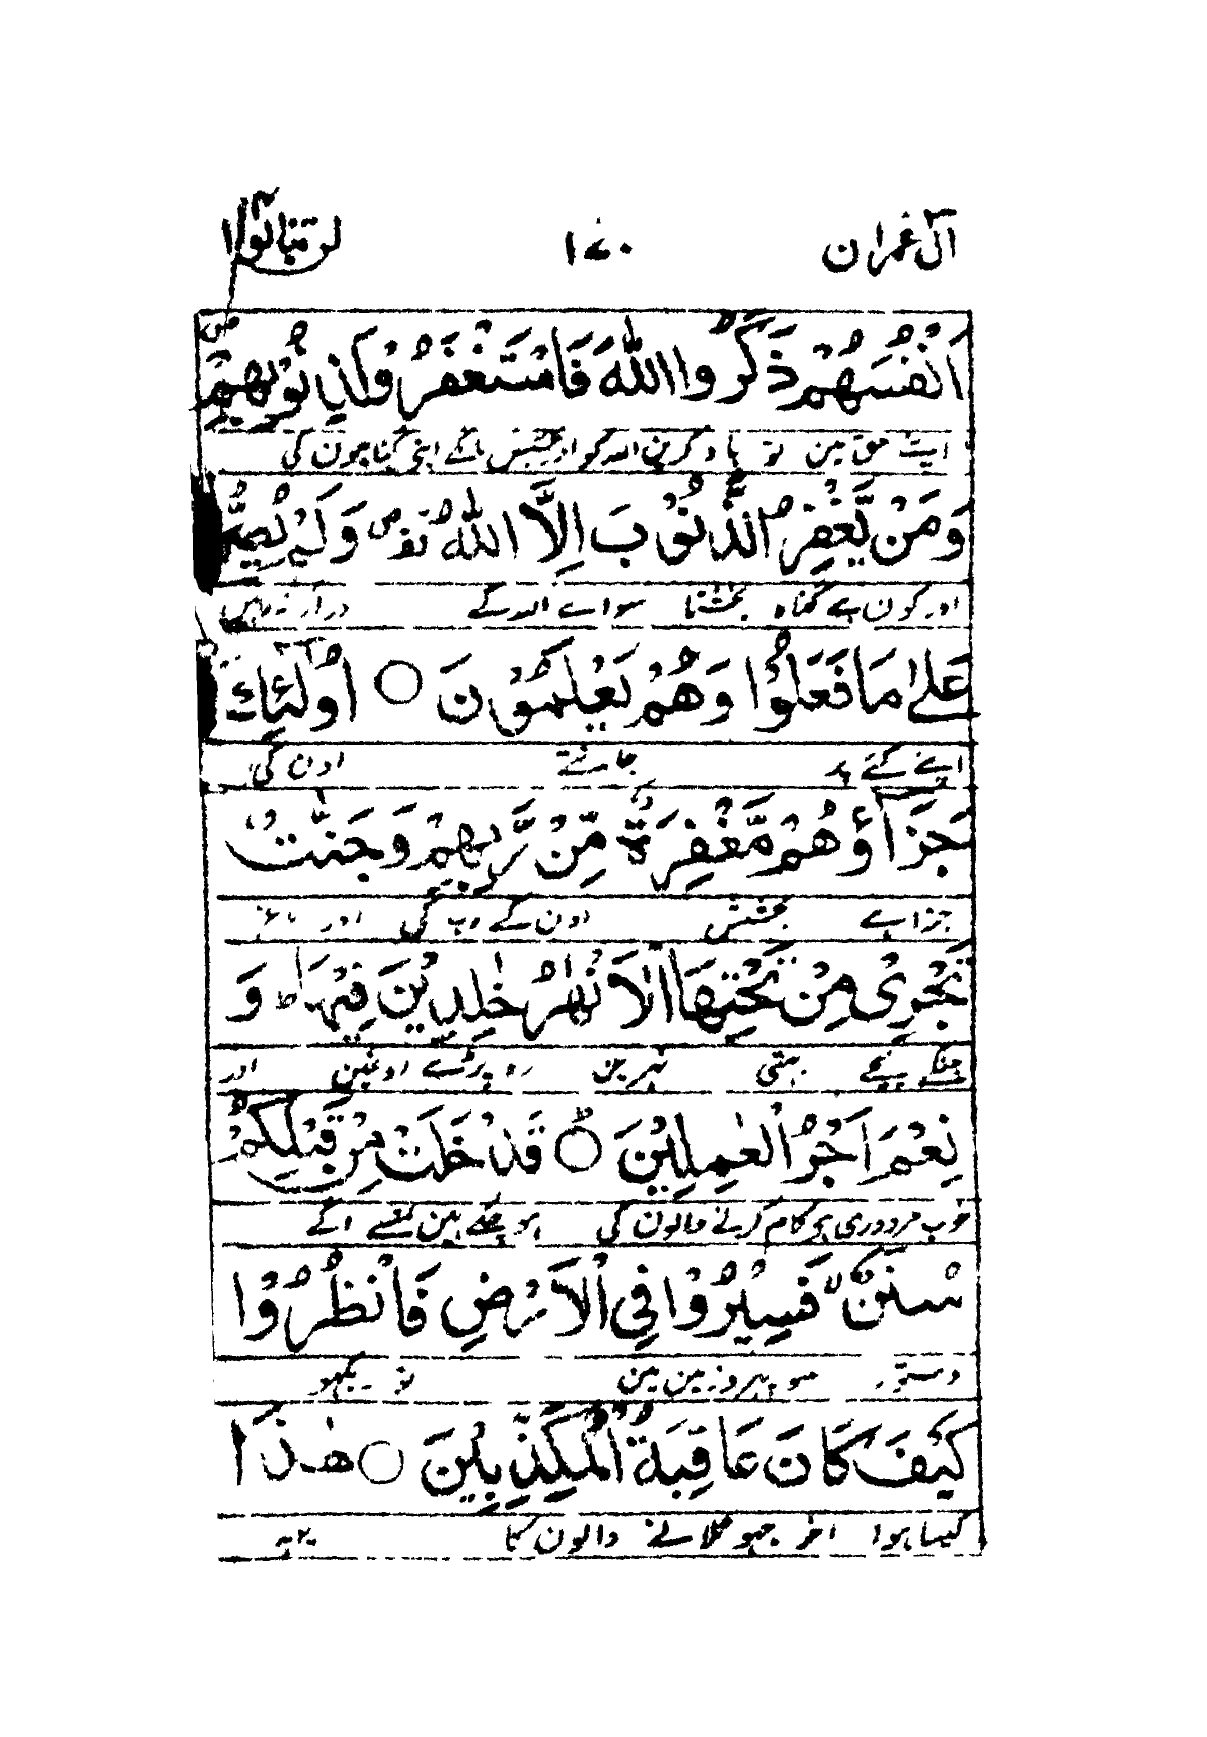 آل عمران ۱۷۰ لن تنالوا ۴
اَنْفُسَهُمْ ذَكَرُوا اللّٰهَ فَاسْتَغْفَرُوْا لِذُنُوْبِهِمْ ص
اپنے حق مین تو یاد کرین اللہ کو اور بخشش مانگے اپنی گناہون کی
وَمَنْ يَّغْفِرُ الذُّنُوْبَ اِلَّا اللّٰهُ وَلَمْ يُصِرُّوْا
اور کون ہے گناہ بخشتا سواے اللہ کے
عَلٰى مَا فَعَلُوْا وَهُمْ يَعْلَمُوْنَ ○ اُولٰٓئِكَ
اپنے کئے پر جانتے اون کی
جَزَآؤُهُمْ مَّغْفِرَةٌ مِّنْ رَّبِّهِمْ وَجَنّٰتٌ
جزا ہے بخشش اون کے رب کی اور باغ
تَجْرِيْ مِنْ تَحْتِهَا الْاَنْهٰرُ خٰلِدِيْنَ فِيْهَا ط وَ
جنکے نیچے بہتی نہرین رہ پڑے اونمین اور
نِعْمَ اَجْرُ الْعٰمِلِيْنَ ○ قَدْ خَلَتْ مِنْ قَبْلِكُمْ
خوب مزدوری ہے کام کرنے والون کی ہو چکے ہین تمسے آگے
سُنَنٌ لا فَسِيْرُوْا فِي الْاَرْضِ فَانْظُرُوْا
دستور سو پھرو زمین مین تو دیکھو
كَيْفَ كَانَ عَاقِبَةُ الْمُكَذِّبِيْنَ ○ هٰذَا
کیسا ہوا آخر جھوٹھلانے والون کا یہ